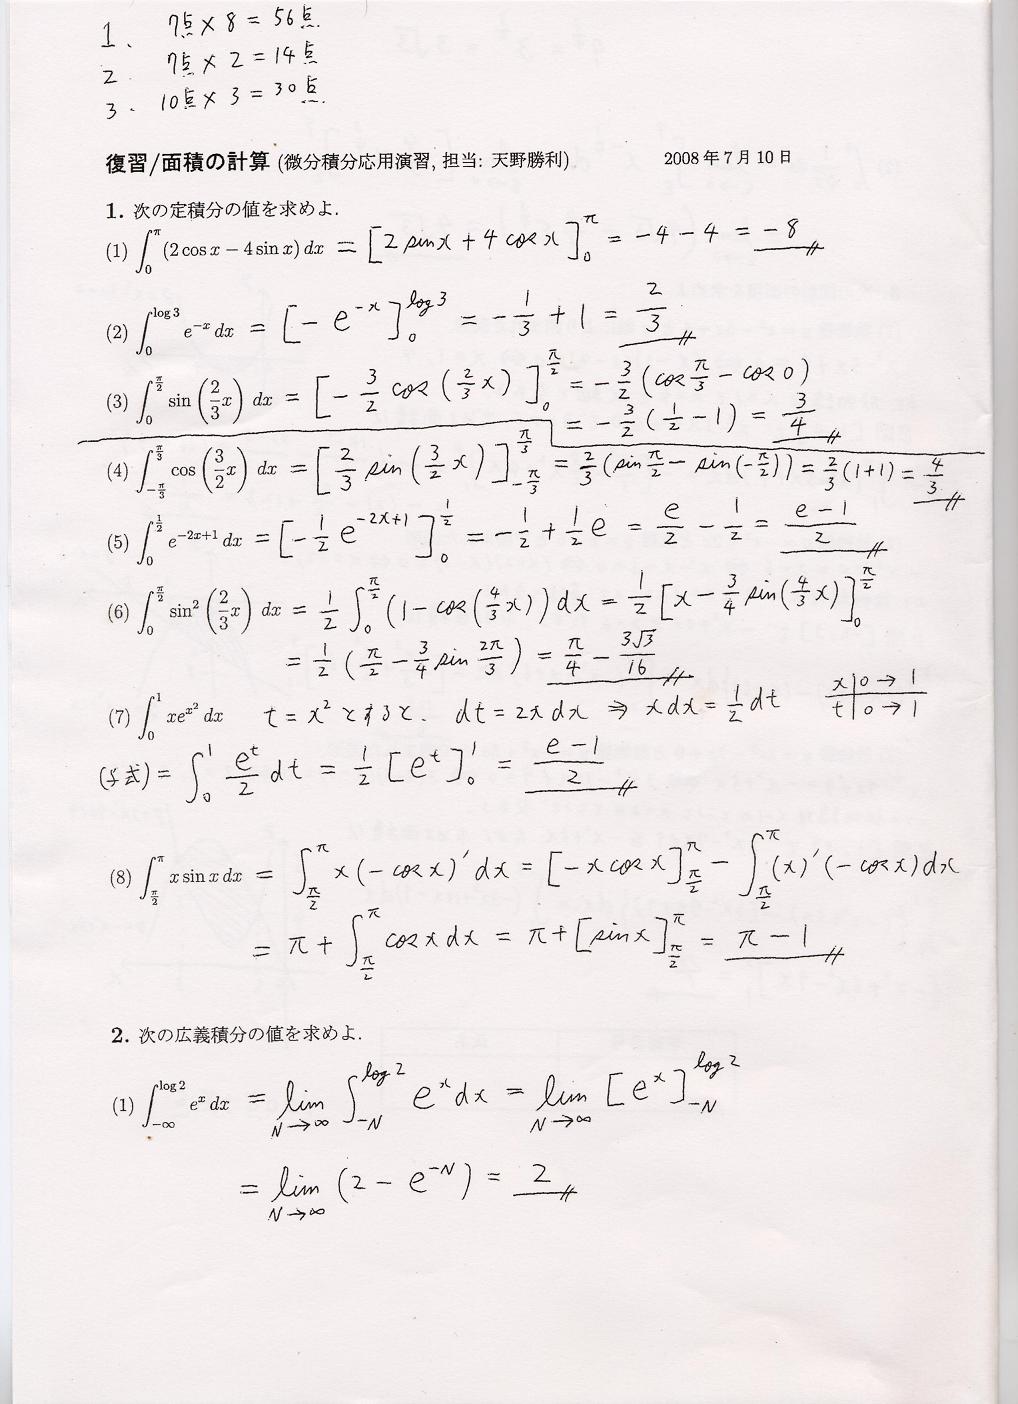 1. 7点 × 8 = 56点
2. 7点 × 2 = 14点
3. 10点 × 3 = 30点
復習/面積の計算 (微分積分応用演習, 担当: 天野勝利) 2008年7月10日
1. 次の定積分の値を求めよ.
(1) ∫_0^π (2 cos x − 4 sin x) dx = [2 sin x + 4 cos x]_0^π = −4 − 4 = −8
(2) ∫_0^{log 3} e^{−x} dx = [−e^{−x}]_0^{log 3} = −1/3 + 1 = 2/3
(3) ∫_0^{π/2} sin(2/3 x) dx = [−3/2 cos(2/3 x)]_0^{π/2} = −3/2 (cos π/3 − cos 0)
= −3/2 (1/2 − 1) = 3/4
(4) ∫_{−π/3}^{π/3} cos(3/2 x) dx = [2/3 sin(3/2 x)]_{−π/3}^{π/3} = 2/3 (sin π/2 − sin(−π/2)) = 2/3 (1+1) = 4/3
(5) ∫_0^{1/2} e^{−2x+1} dx = [−1/2 e^{−2x+1}]_0^{1/2} = −1/2 + 1/2 e = e/2 − 1/2 = (e−1)/2
(6) ∫_0^{π/2} sin²(2/3 x) dx = 1/2 ∫_0^{π/2} (1 − cos(4/3 x)) dx = 1/2 [x − 3/4 sin(4/3 x)]_0^{π/2}
= 1/2 (π/2 − 3/4 sin 2π/3) = π/4 − 3√3/16
(7) ∫_0^1 xe^{x²} dx t = x² とすると. dt = 2x dx ⇒ x dx = 1/2 dt x | 0 → 1
t | 0 → 1
(与式) = ∫_0^1 e^t/2 dt = 1/2 [e^t]_0^1 = (e−1)/2
(8) ∫_{π/2}^π x sin x dx = ∫_{π/2}^π x(−cos x)′ dx = [−x cos x]_{π/2}^π − ∫_{π/2}^π (x)′(−cos x) dx
= π + ∫_{π/2}^π cos x dx = π + [sin x]_{π/2}^π = π − 1
2. 次の広義積分の値を求めよ.
(1) ∫_{−∞}^{log 2} e^x dx = lim_{N→∞} ∫_{−N}^{log 2} e^x dx = lim_{N→∞} [e^x]_{−N}^{log 2}
= lim_{N→∞} (2 − e^{−N}) = 2